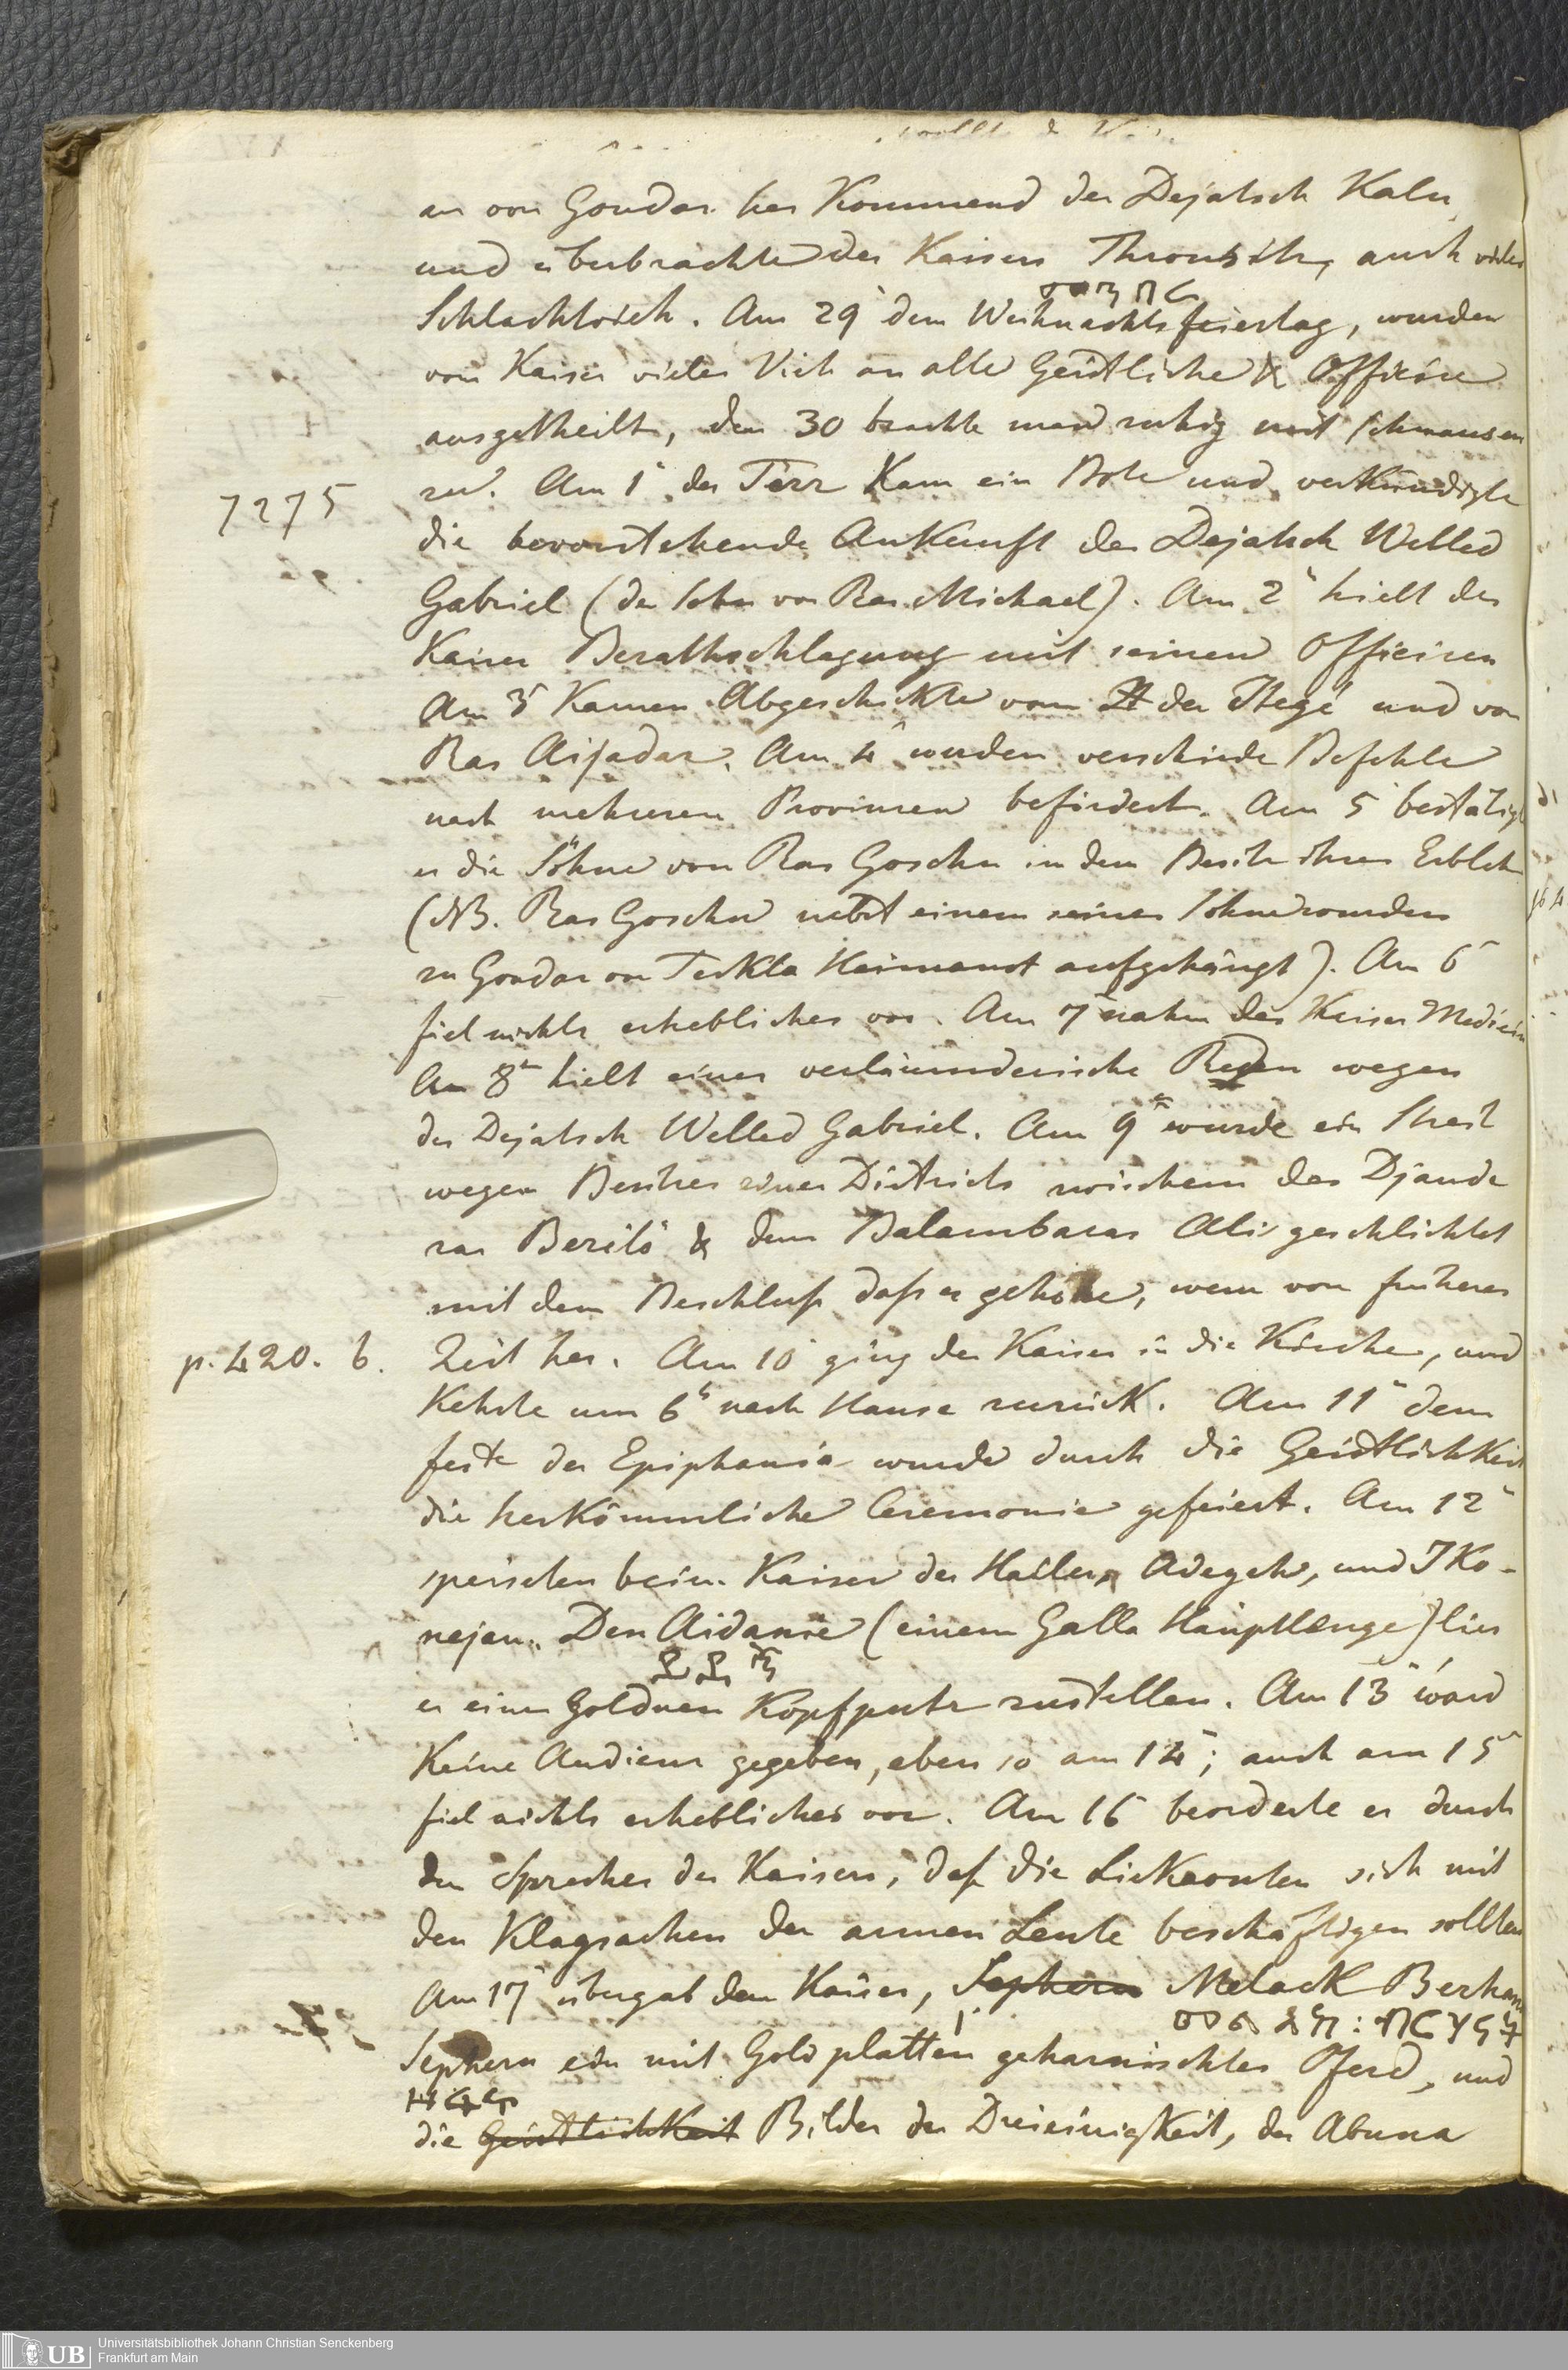 an von Gondar her Kommend der Dejatsch Kalu
und überbrachte des Kaisers Thronsitz, auch vieles
መንበር
Schlachtvieh. Am 29ⁿ dem Weihnachtsfeiertag, wurden
vom Kaiser vieles Vieh an alle Geistliche & Officire
ausgetheilt, den 30 brachte man ruhig mit schmausen
7275 zu. Am 1ⁿ des Terr Kam ein Bote und verkündigte
die bevorstehende Ankunft des Dejatsch Welled
Gabriel (der Sohn von Ras Michael). Am 2ⁿ hielt der
Kaiser Berathschlagung mit seinen Officiren
Am 3ⁿ Kamen Abgeschickte von der Itegé und von
Ras Aijadar. Am 4ⁿ wurden verschiede Befehle
nach mehreren Provinzen befördert. Am 5ⁿ bestätigt
er die Söhne von Ras Goschu in dem Besitz ihres
(NB. Ras Goschu nebst einem seiner Söhne wurden
zu Gondar von Teckla Haimanot aufgehängt). Am 6ⁿ
fiel nichts erhebliches vor. Am 7ⁿ nahm der Kaiser Medicin
Am 8ⁿ hielt einer verläumderische Reden wegen
des Dejatsch Welled Gabriel. Am 9ⁿ wurde ein Streit
wegen Besitzes eines Districts zwischem des Djande
ras & dem Balambaras Ali geschlichtet
mit dem Beschluß daß er gehöre, wem von früherer
p. 420. b. Zeit her. Am 10ⁿ ging der Kaiser in die Kirche, und
Kehrte um 6ʰ nach Hause zurück. Am 11ⁿ dem
feste der Epiphania wurde durch die Geistlichkeit
die herkömmliche Ceremonie gefeiert. Am 12ⁿ
speisten beim Kaiser der Hailu, Adegeh, und IKo-
nejan. Den Aidanie (einem Galla Häuptlinge) lies
er einen Goldnen Kopfputz zustellen. Am 13ⁿ ward
Keine Audienz gegeben, eben so am 14ⁿ; auch am 15ⁿ
fiel nichts erhebliches vor. Am 16ⁿ beorderte er durch
den Sprecher des Kaisers, daß die Lickaonten sich mit
den Klagsachen der armen Leute beschäftigen sollten
Am 17ⁿ übergab dem Kaiser, Sephera Melack Berhan
Sephera ein mit Goldplatten geharnischtes Pferd, und
die Geistlichkeit Bilder der Dreieinigkeit, der Abuna
Universitätsbibliothek Johann Christian Senckenberg
Frankfurt am Main
UB